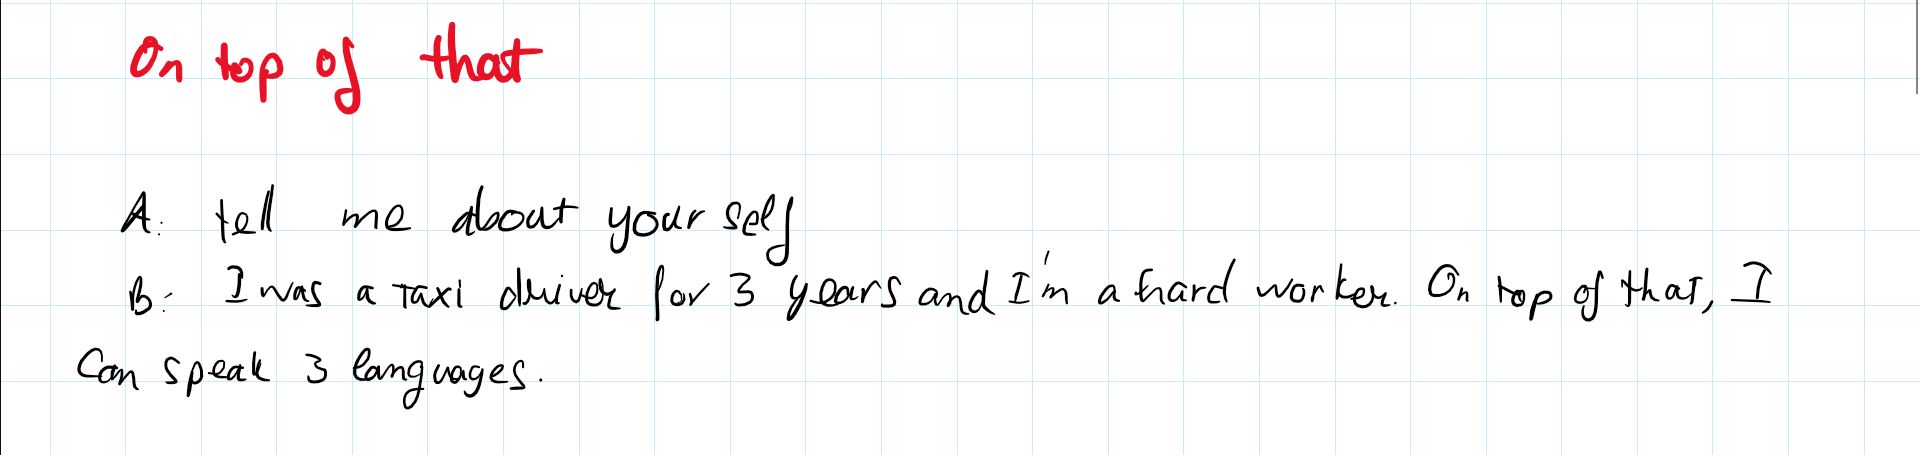 On top of that
A: tell me about your self
B: I was a taxi driver for 3 years and I'm a hard worker. On top of that, I
Can speak 3 languages.